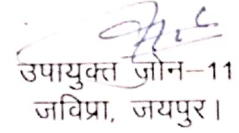 उपायुक्त ज़ोन–11
जविप्रा, जयपुर।